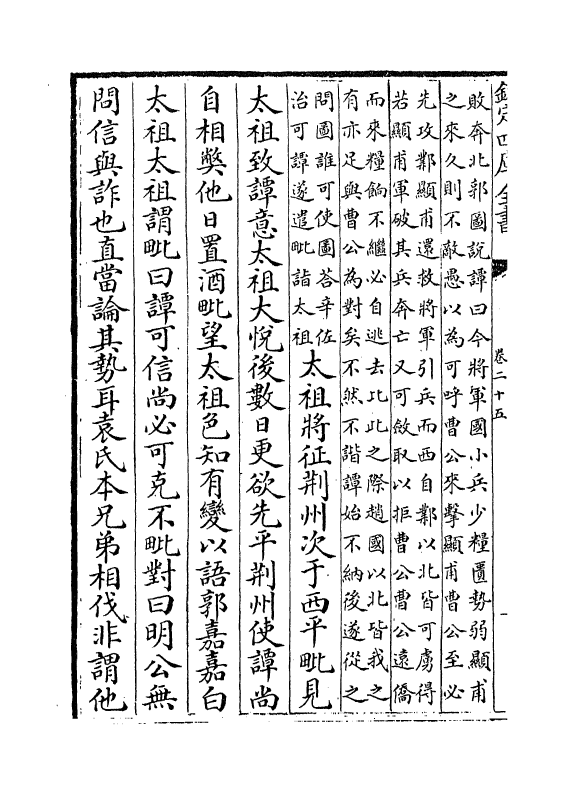 欽定四庫全書
卷二十五
敗奔北郭圖說譚曰今將軍國小兵少糧匱勢弱顯甫
之來久則不敵愚以為可呼曹公來擊顯甫曹公至必
先攻鄴顯甫還救將軍引兵而西自鄴以北皆可虜得
若顯甫軍破其兵奔亡又可斂取以拒曹公曹公遠僑
而來糧餉不繼必自逃去比此之際趙國以北皆我之
有亦足與曹公為對矣不然不諧譚始不納後遂從之
問圖誰可使圖荅辛佐
治可譚遂遣毗詣太祖
太祖將征荆州次于西平毗見
太祖致譚意太祖大悅後數日更欲先平荆州使譚尚
自相獘他日置酒毗望太祖色知有變以語郭嘉嘉白
太祖太祖謂毗曰譚可信尚必可克不毗對曰明公無
問信與詐也直當論其勢耳袁氏本兄弟相伐非謂他